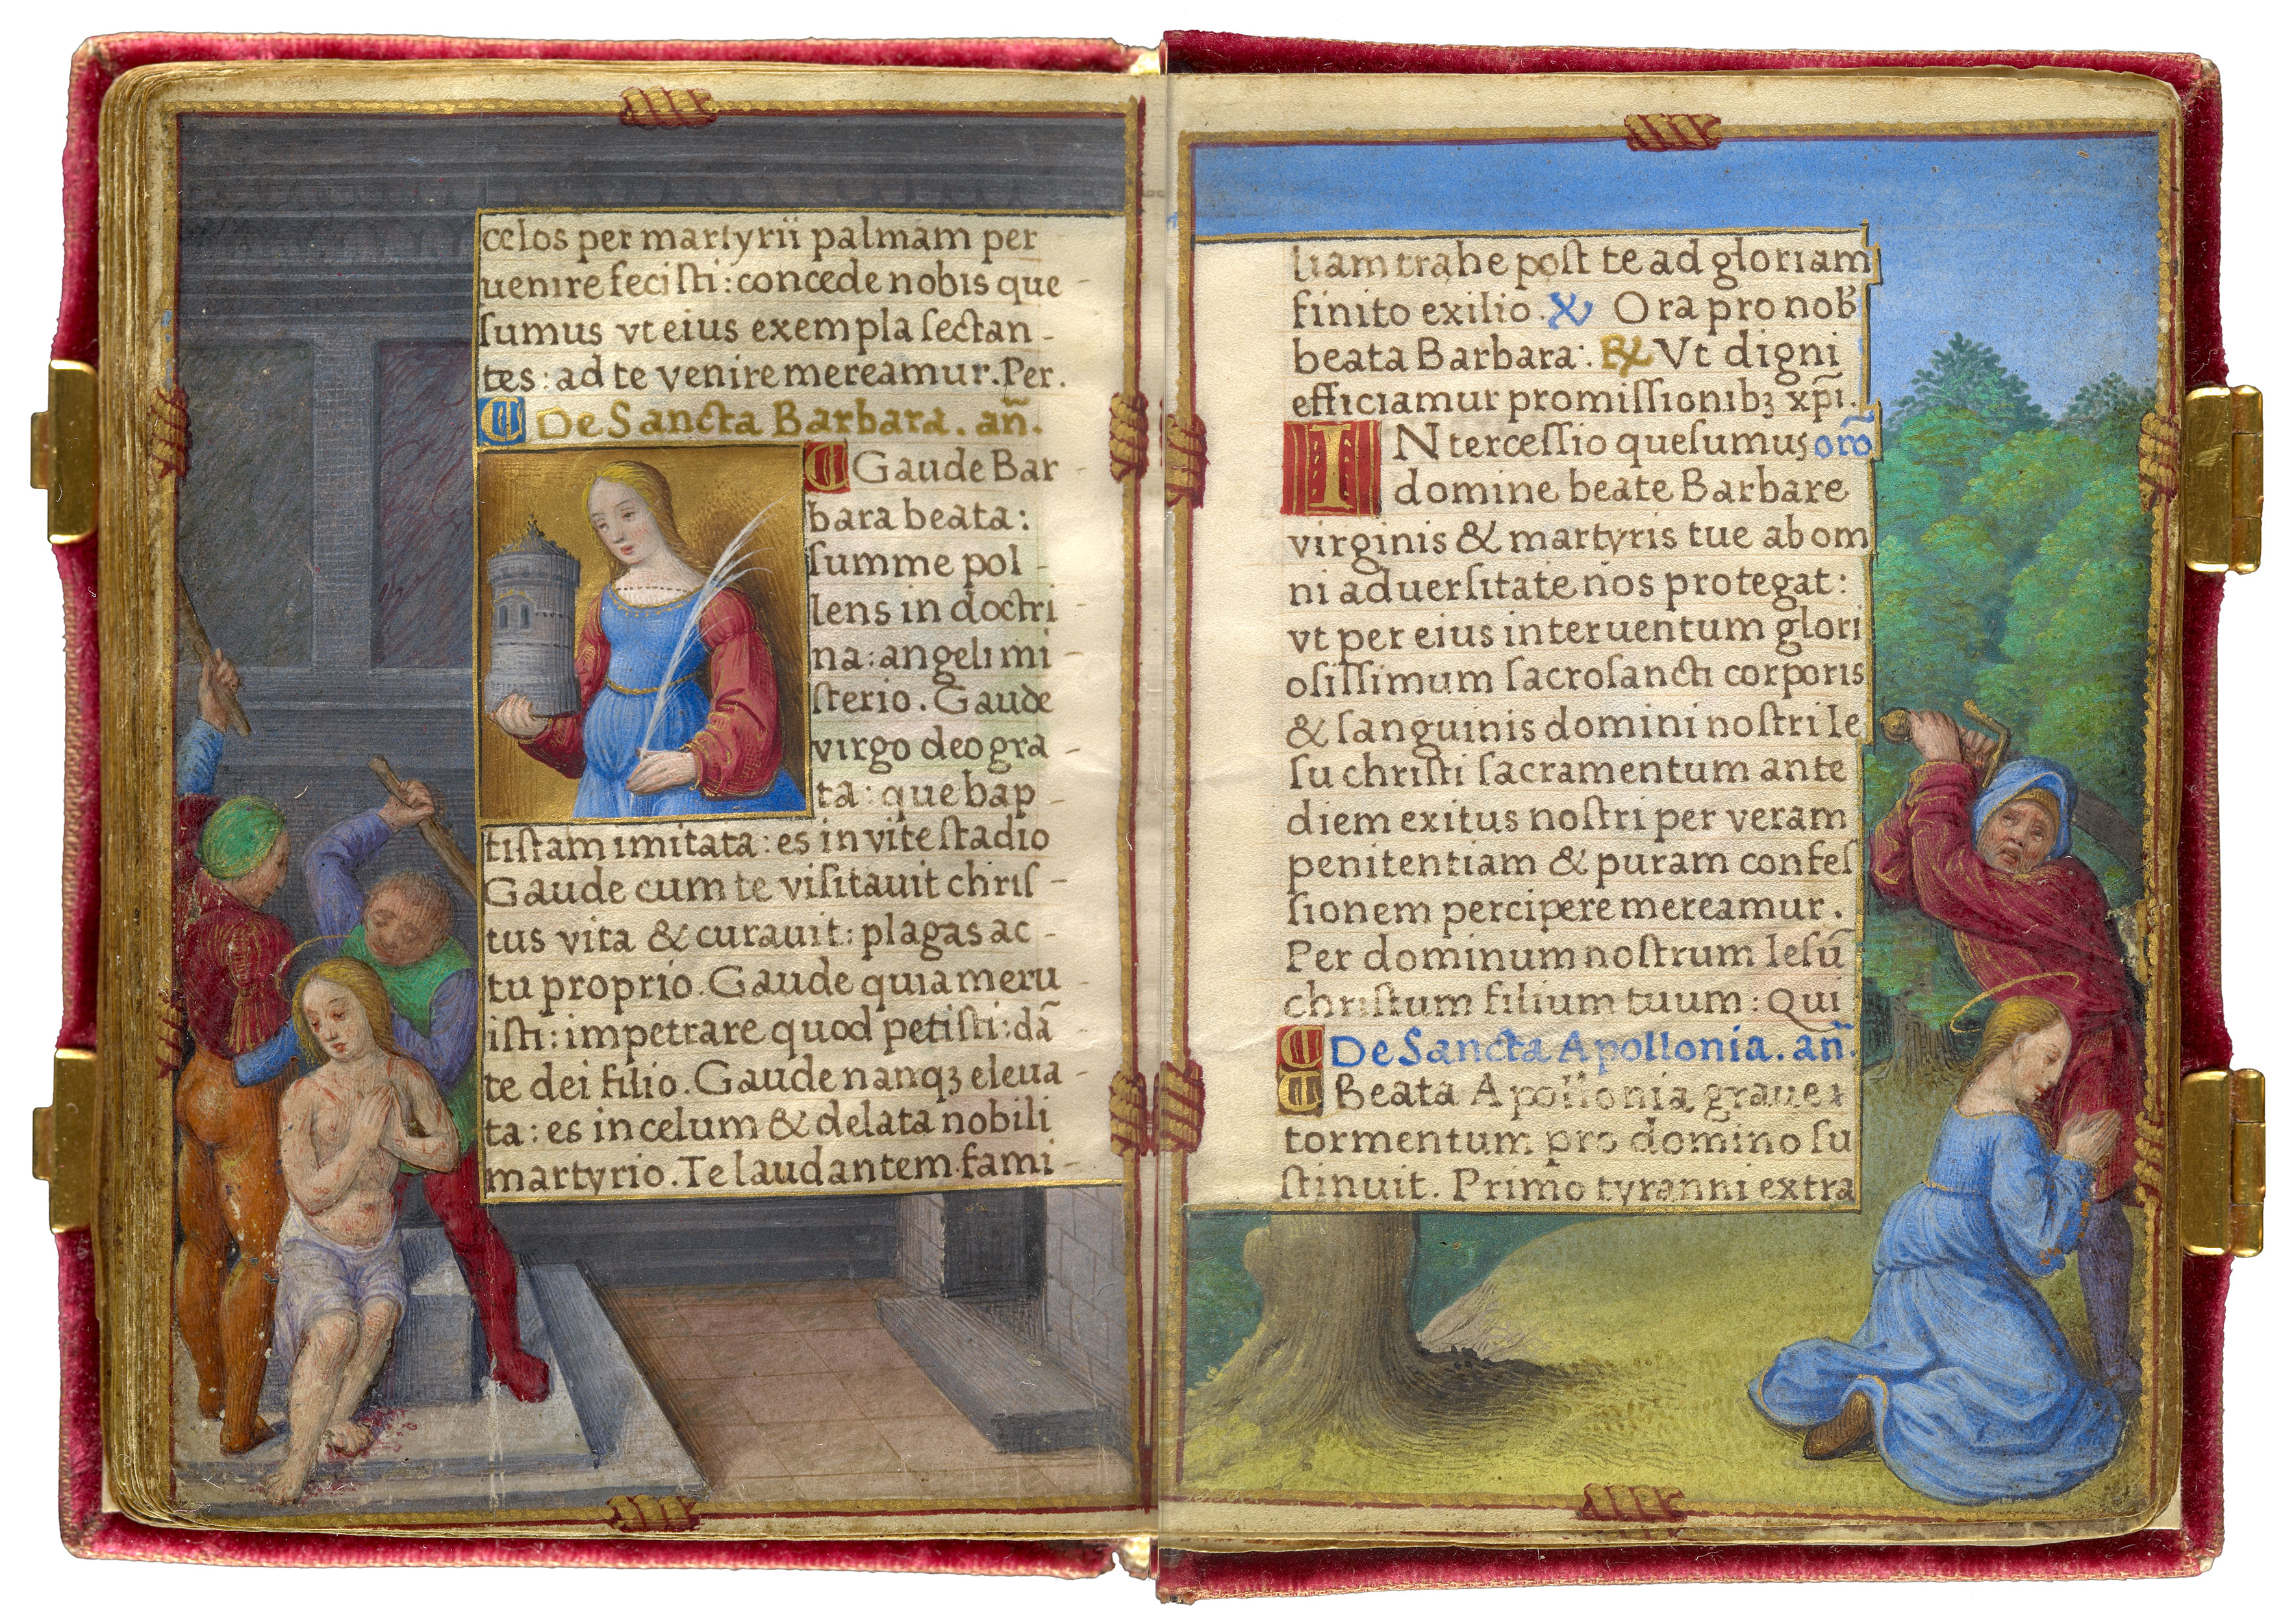 celos per martyrii palmam per
uenire fecisti: concede nobis que-
sumus vt eius exempla sectan-
tes: ad te venire mereamur. Per.
De Sancta Barbara. an̄.
Gaude Bar-
bara beata:
summe pol-
lens in doctri-
na: angeli mi-
sterio. Gaude
virgo deo gra-
ta: que bap-
tistam imitata: es in vite stadio
Gaude cum te visitauit chris-
tus vita & curauit: plagas ac-
tu proprio. Gaude quia meru-
isti: impetrare quod petisti: dā-
te dei filio. Gaude nanqꝫ eleua-
ta: es in celum & delata nobili
martyrio. Te laudantem fami-
liam trahe post te ad gloriam
finito exilio. ℣ Ora pro nob̄
beata Barbara: ℞ Vt digni
efficiamur promissionibꝫ xp̄i.
INtercessio quesumus orō
domine beate Barbare
virginis & martyris tue ab om
ni aduersitate nos protegat:
vt per eius interuentum glori
osissimum sacrosancti corporis
& sanguinis domini nostri Ie
su christi sacramentum ante
diem exitus nostri per veram
penitentiam & puram confes
sionem percipere mereamur.
Per dominum nostrum Iesū
christum filium tuum: Qui
De Sancta Apollonia. an̄.
Beata Apollonia graue
tormentum pro domino su
stinuit. Primo tyranni extra